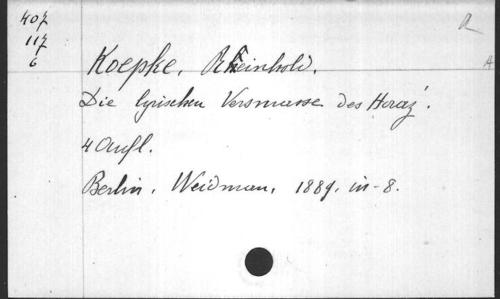 407
117
6
R
A
Koepke, Reinhold.
Die lyrischen Versmasse des Horaz'.
4 Aufl.
Berlin, Weidman, 1889, in-8.